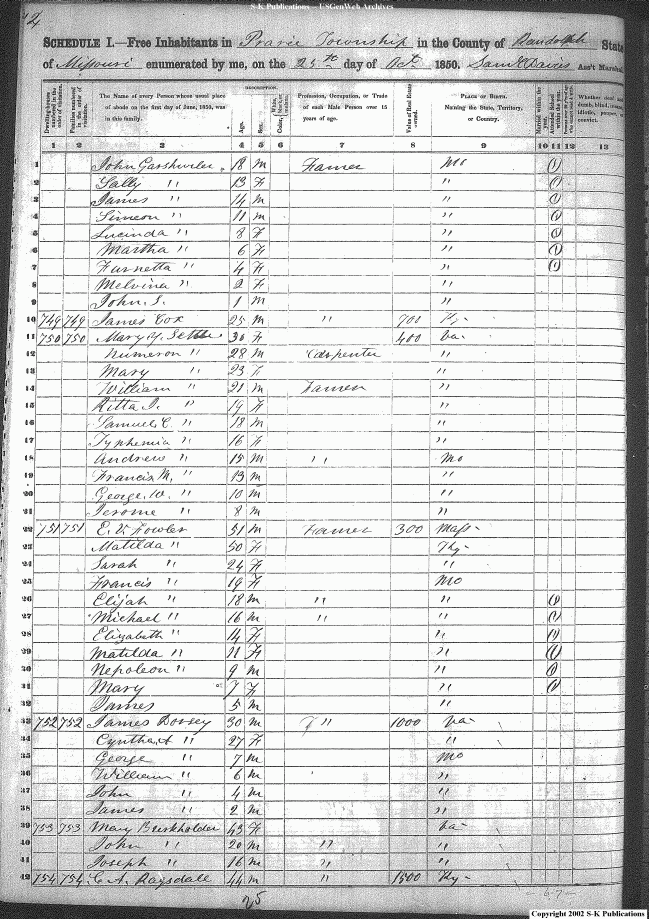 S-K Publications — USGenWeb Archives
SCHEDULE I.—Free Inhabitants in Prarie Township in the County of Randolph State
of Missouri enumerated by me, on the 25th day of Oct 1850. Saml Davis Ass't Marshal
Dwelling-houses numbered in the order of visitation. Families numbered in the order of visitation. The Name of every Person whose usual place of abode on the first day of June, 1850, was in this family. DESCRIPTION. Age. Sex. Color. Profession, Occupation, or Trade of each Male Person over 15 years of age. Value of Real Estate owned. Place of Birth. Naming the State, Territory, or Country. Married within the year.
1 2 3 4 5 6 7 8 9 10 11 12 13
1 John 18 M Famer Mo (1)
2 Sally " 13 F " (1)
3 James " 14 M " (1)
4 Simeon " 11 M " (1)
5 Lucinda " 8 F " (1)
6 Martha " 6 F " (1)
7 " 4 F " (1)
8 Melvina " 2 F "
9 John S. 1 M "
10 749 749 James Cox 25 M " 700 Ky-
11 750 750 Mary 30 F 400 Va-
12 Numeron " 28 M Carpenter "
13 Mary " 23 F "
14 William " 21 M Famer "
15 Ritta " 19 F "
16 Samuel C. " 18 M "
17 Typhemia " 16 F "
18 Andrew " 15 M " Mo
19 Francis M. " 13 M "
20 George W. " 10 M "
21 Jerome " 8 M "
22 751 751 E. V. Fowler 51 M Famer 300 Mass-
23 Matilda " 50 F Ky-
24 Sarah " 24 F "
25 Francis " 19 F Mo
26 Elijah " 18 M " " (1)
27 Michael " 16 M " " (1)
28 Elizabeth " 14 F " (1)
29 Matilda " 11 F " (1)
30 Nepoleon " 9 M " (1)
31 Mary 7 F " (1)
32 James 5 M "
33 752 752 James Dorsey 30 M F " 1000 Va-
34 Cyntha A " 27 F "
35 George " 7 M Mo
36 William " 6 M "
37 John " 4 M "
38 James " 2 M "
39 753 753 Mary Burkholder 43 F Va-
40 John " 20 M " "
41 Joseph " 16 M " "
42 754 754 C. A. Ragsdale 44 M " 1500 Ky-
25
Copyright 2002 S-K Publications